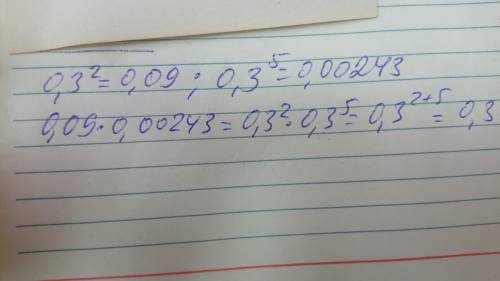 0,3²=0,09; 0,3⁵=0,00243
0,09·0,00243=0,3²·0,3⁵=0,3²⁺⁵=0,3